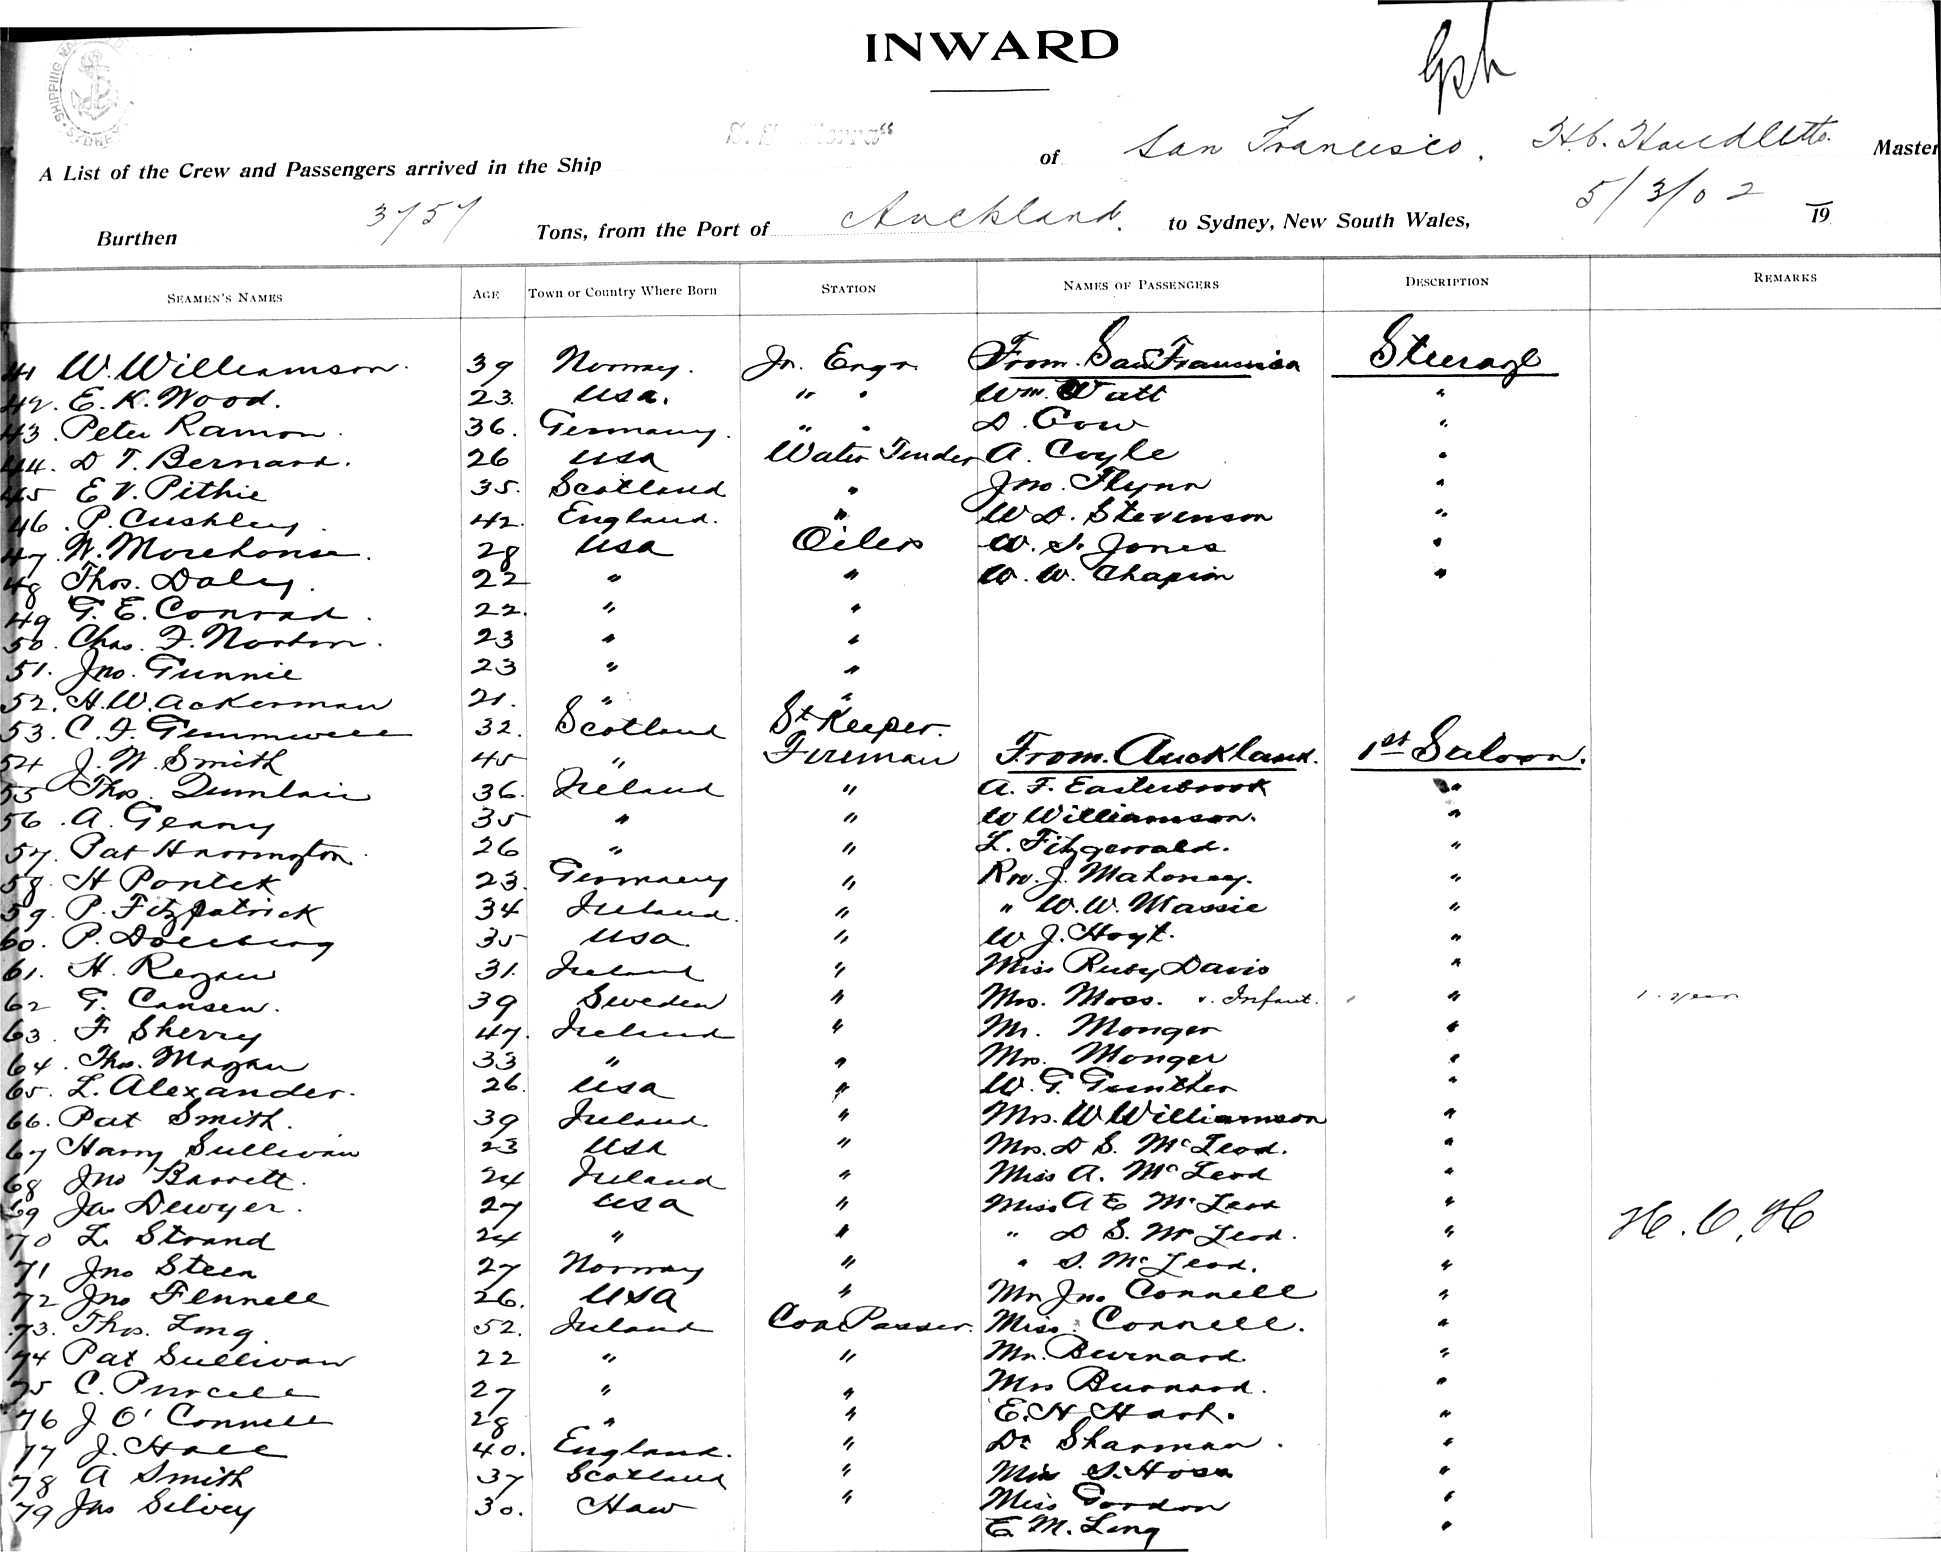 INWARD
A List of the Crew and Passengers arrived in the Ship of San Francisco, Master
Burthen 3757 Tons, from the Port of Auckland. to Sydney, New South Wales, 5/3/02 19
SEAMEN'S NAMES AGE Town or Country Where Born STATION NAMES OF PASSENGERS DESCRIPTION REMARKS
41 W. Williamson. 39 Norway. Jr. Engr From San Francisco Steerage
42. E. K. Wood. 23. USA. " " Wm. Watt "
43. Peter Ramon. 36. Germany. " " D. Gow "
44. D T. Bernard. 26 USA Water Tender A. Coyle "
45 E V. Pithie 35. Scotland " Jno. Flynn "
46. P. Cushley. 42. England. " W D. Stevenson "
47. W. Morehouse. 28 USA Oilers W. S. Jones "
48 Thos. Daley. 22 " " W. W. Chapin "
49 G. E. Conrad. 22. " "
50. Chas. F. Norton. 23 " "
51. Jno. Gunnie 23 " "
52. H. W. Ackerman 21. " "
53. C. F. Gemmell 32. Scotland St Keeper.
54 J. W. Smith 45 " Fireman From Auckland. 1st Saloon.
55 Thos. 36. Ireland " A. F. Easterbrook "
56. A. Geany 35 " " W Williamson. "
57. Pat Harrington. 26 " " L. Fitzgerrald. "
58. H Pontek 23. Germany " Rev. J. Mahoney. "
59. P. Fitzpatrick 34 Ireland. " " W. W. Massie "
60. P. 35 USA " W J. Hoyt. "
61. H. Regan 31. Ireland " Miss Ruby Davis "
62 G. Cansen. 39 Sweden " Mrs. Moss. & Infant. " 1 year
63. F Sherry 47. Ireland " Mr. Monger "
64. Thos. Magan 33 " " Mrs. Monger "
65. L. Alexander. 26. USA " W. G. Gunther "
66. Pat Smith. 39 Ireland " Mrs. W Williamson "
67 Harry Sullivan 23 USA " Mrs. D S. McLeod. "
68 Jno Barrett. 24 Ireland " Miss A. McLeod "
69 Jas Dewyer. 27 USA " Miss A E McLeod "
70 L. Strand 24 " " " D S. McLeod. " H. C. H
71 Jno Steen 27 Norway " " S. McLeod. "
72 Jno Fennell 26. USA " Mr Jno. Connell "
73. Thos. Long. 52. Ireland Coal Passer. Miss. Connell. "
74 Pat Sullivan 22 " " Mr. Burnard "
75 C. Purcell 27 " " Mrs Burnard. "
76 J O'Connell 28 " " E. H Hart. "
77 J. Hall 40. England. " Dr Sharman. "
78 A Smith 37 Scotland " Miss S. Hosa "
79 Jno Silvey 30. Haw " Miss Gordon "
E. M. Ling "